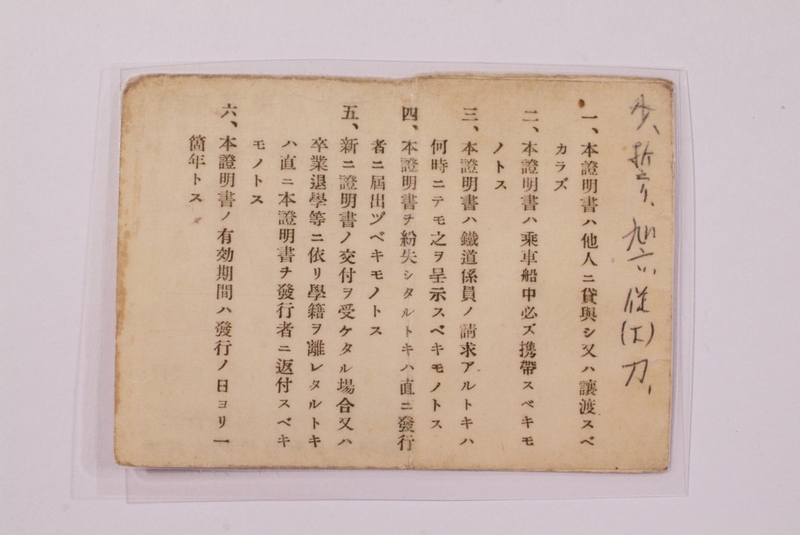 一、本證明書ハ他人ニ貸與シ又ハ讓渡スベ
カラズ
二、本證明書ハ乘車船中必ズ携帶スベキモ
ノトス
三、本證明書ハ鐵道係員ノ請求アルトキハ
何時ニテモ之ヲ呈示スベキモノトス
四、本證明書ヲ紛失シタルトキハ直ニ發行
者ニ届出ヅベキモノトス
五、新ニ證明書ノ交付ヲ受ケタル場合又ハ
卒業退學等ニ依リ學籍ヲ離レタルトキ
ハ直ニ本證明書ヲ發行者ニ返付スベキ
モノトス
六、本證明書ノ有効期間ハ發行ノ日ヨリ一
箇年トス